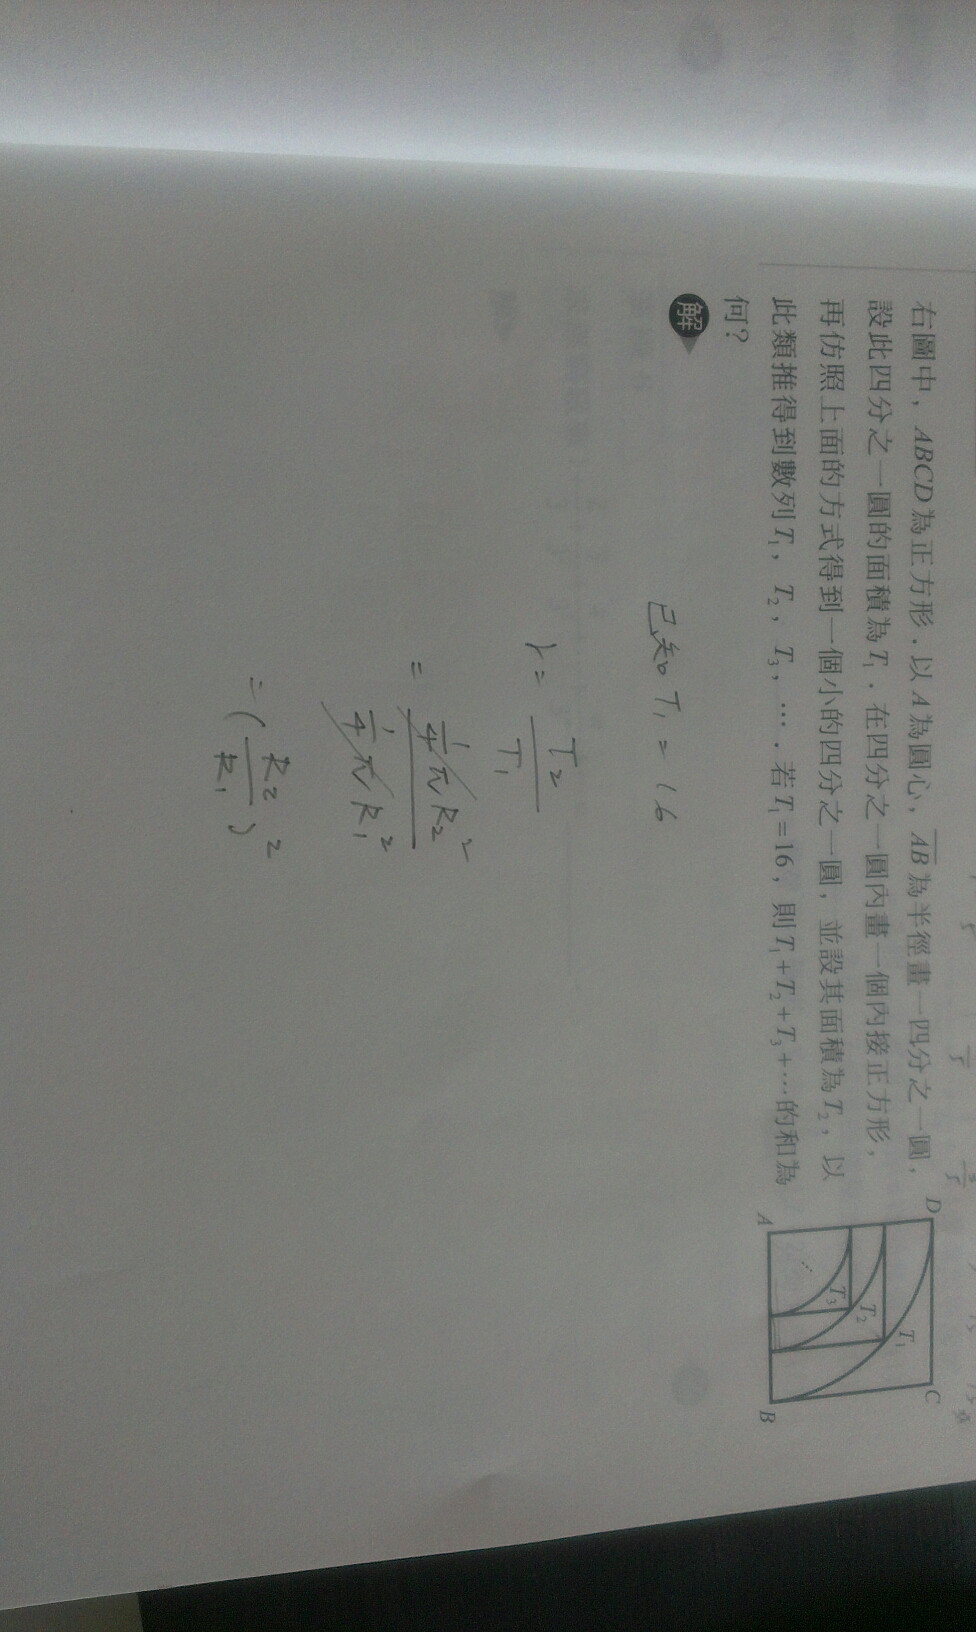 右圖中，ABCD為正方形，以A為圓心，AB為半徑畫一四分之一圓，
設此四分之一圓的面積為T₁，在四分之一圓內畫一個內接正方形，
再仿照上面的方式得到一個小的四分之一圓，並設其面積為T₂，以
此類推得到數列T₁，T₂，T₃，…，若T₁=16，則T₁+T₂+T₃+…的和為
何？
D
C
T₁
T₂
T₃
A
B
解
已知 T₁ = 16
r = T₂/T₁
= (1/4 π R₂²)/(1/4 π R₁²)
= (R₂/R₁)²